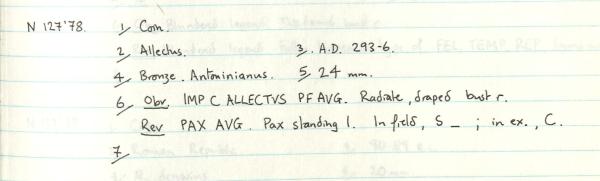 N 127'78. 1/ Coin.
2/ Allectus. 3/. A.D. 293-6.
4/ Bronze. Antoninianus. 5/. 24 mm.
6/ Obv. IMP C ALLECTVS PF AVG. Radiate, draped bust r.
Rev PAX AVG. Pax standing l. In field, S _ ; in ex., C.
7/